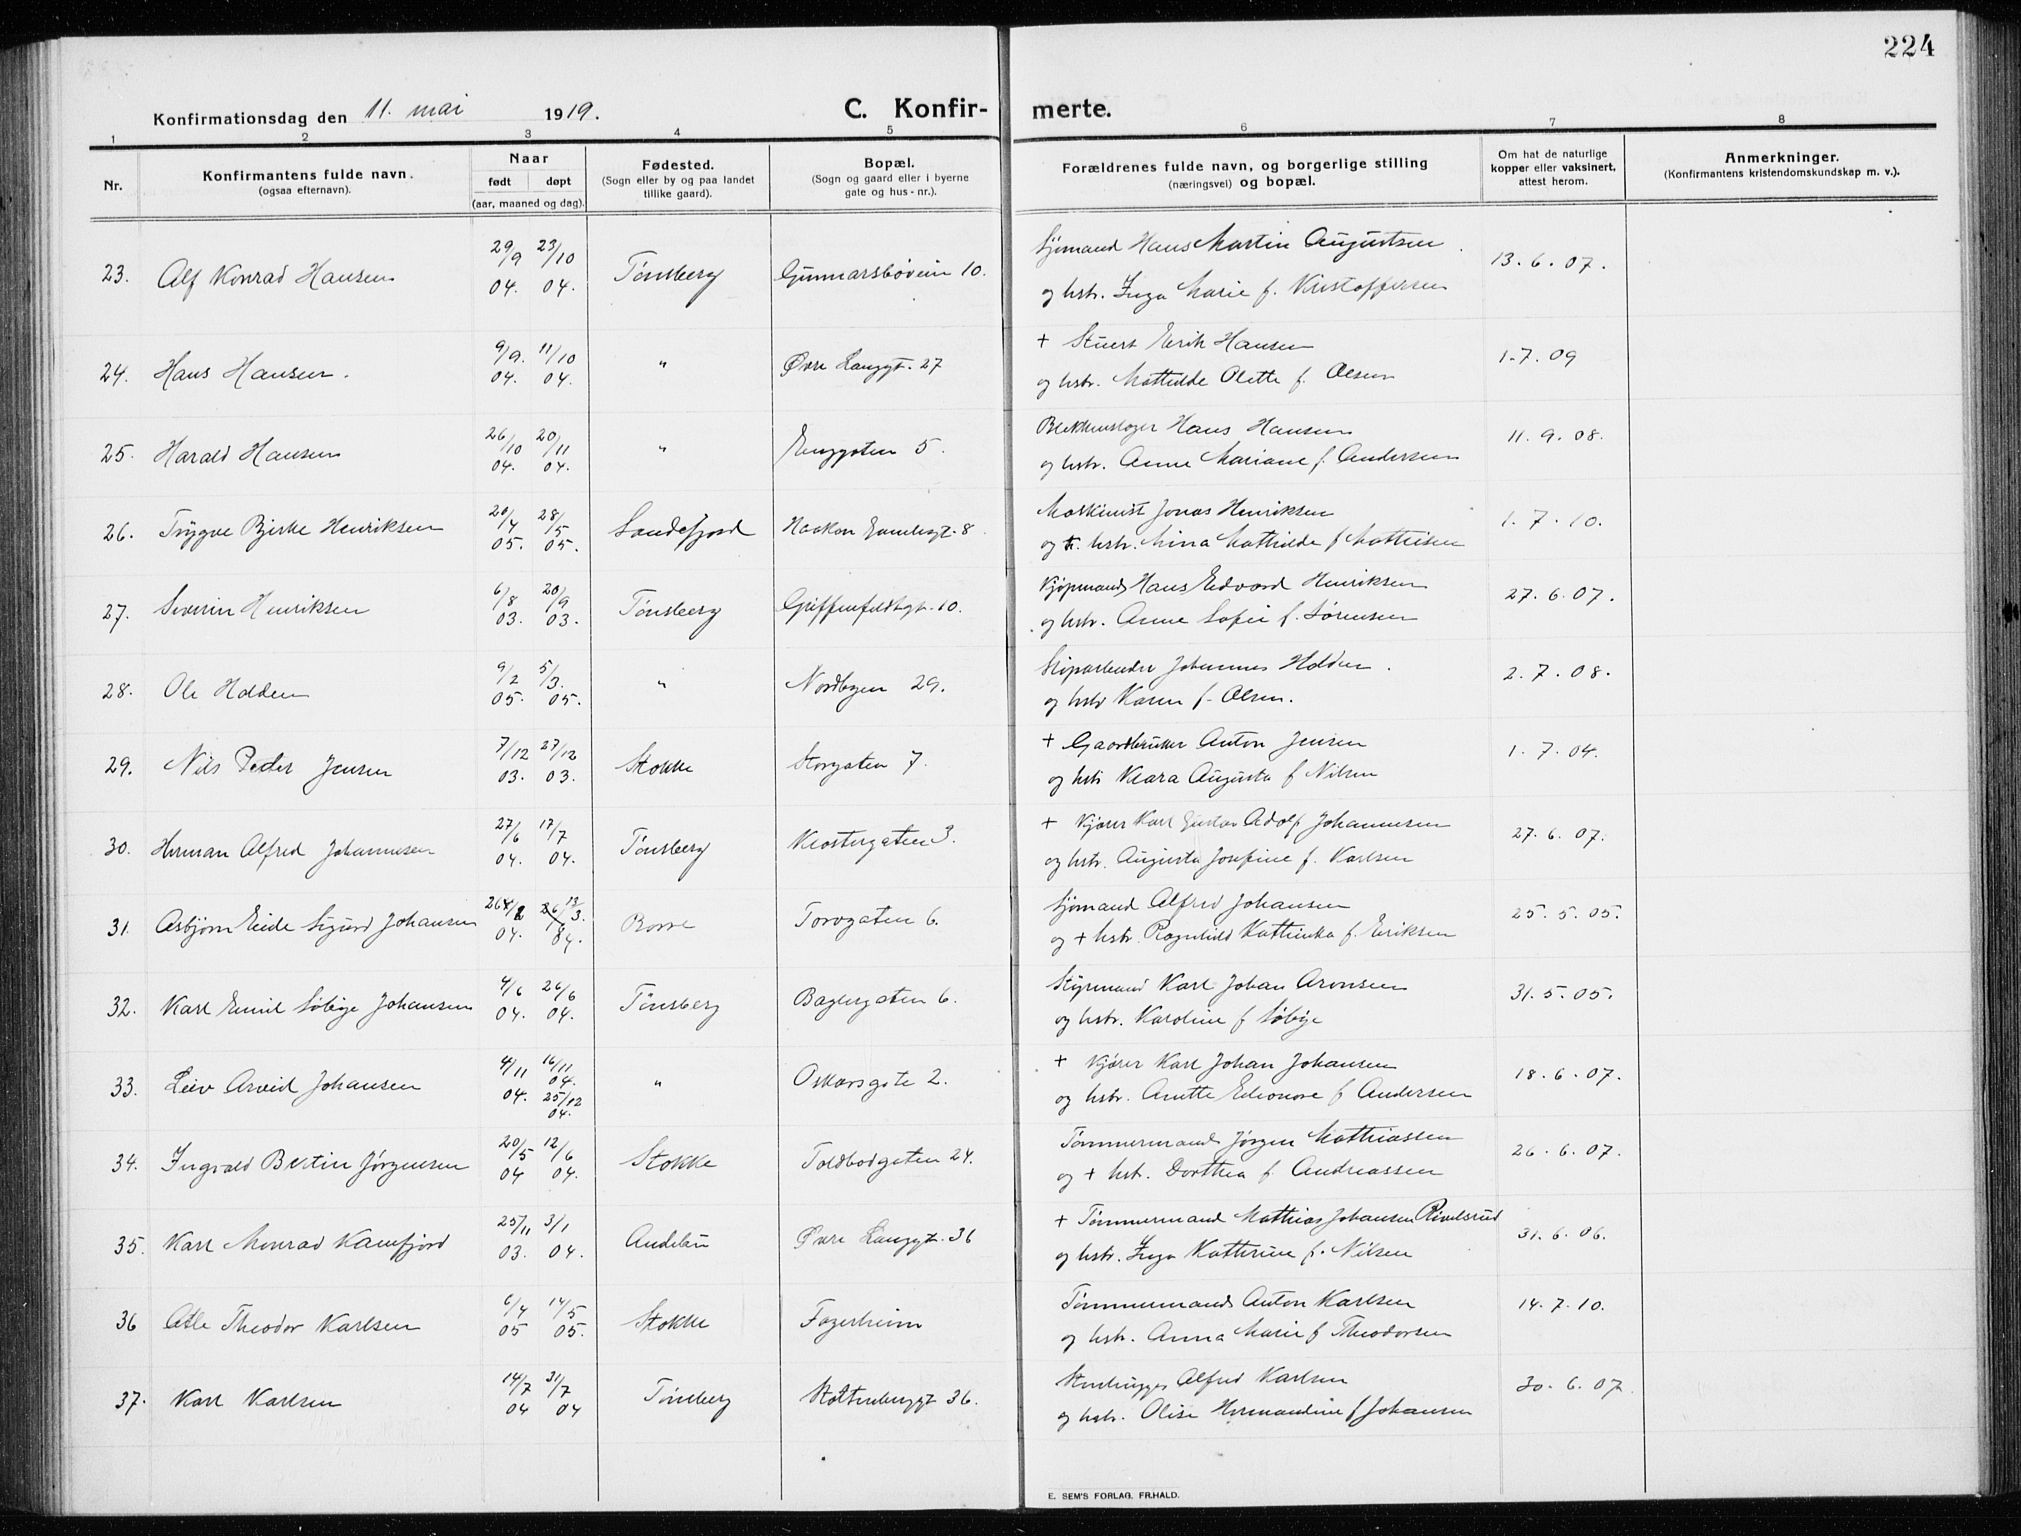 224
Konfirmationsdag den 11. mai 1919. C. Konfir- merte.
1 2 3 4 5 6 7 8
Nr. Konfirmantens fulde navn. (ogsaa efternavn). Naar født døpt (aar, maaned og dag). Fødested. (Sogn eller by og paa landet tillike gaard). Bopæl. (Sogn og gaard eller i byerne gate og hus-nr.). Forældrenes fulde navn, og borgerlige stilling (næringsvei) og bopæl. Om hat de naturlige kopper eller vaksinert, attest herom. Anmerkninger. (Konfirmantens kristendomskundskap m. v.).
23. Alf Konrad Hansen 29/9 04. 23/10 04. Tønsberg Gunnarsbøveien 10. Sjømand Hans Martin Augustsen 13.6.07.
og hstr. Inga Marie f. Kristoffersen
24. Hans Hansen. 9/9. 04. 11/10 04. " Øvre Langgt. 27 + Stuert Erik Hansen 1.7.09
og hstr. Mathilde Olette f. Olsen
25. Harald Hansen 26/10 04. 20/11 04. " Enggaten 5. Blikkenslager Hans Hansen 11.9.08.
og hstr. Anne Mariane f. Andersen
26. Trygve Bjerke Henriksen 20/4 05. 28/5 05. Sandefjord Haakon Gamlesgt. 8 Maskinist Jonas Henriksen 1.7.10.
og hstr. Mina Mathilde f Mathisen
27. Severin Henriksen 6/8 03. 20/9 03. Tønsberg Griffenfeldtsgt. 10. Kjøpmand Hans Edvard Henriksen 27.6.07.
og hstr. Anne Sofie f. Sørensen
28. Ole Holden 9/2 05. 5/3. 05. " Nordbyen 29. Skipsarbeider Johannes Holden. 2.7.08.
og hstr Karen f. Olsen.
29. Nils Peder Jensen 7/12 03. 27/12 03. Stokke Storgaten 7. + Gaardbruker Anton Jensen 1.7.04.
og hstr Klara Augusta f Nilsen
30. Herman Alfred Johannesen 27/6 04. 17/7 04. Tønsberg Klostergaten 3. + Kjører Karl Gustav Adolf Johannesen 27.6.07.
og hstr. Augusta Josefine f. Karlsen
31. Asbjørn Eide Sigurd Johansen 04. 13/3. 04. Borre Torvgaten 6. Sjømand Alfred Johansen 25.5.05.
og + hstr. Ragnhild Kathinka f. Eriksen
32. Karl Emil Søbye Johansen 4/6 04. 26/6 04. Tønsberg Baglergaten 6. Styrmand Karl Johan Aronsen 31.5.05.
og hstr. Karoline f Søbye
33. Leiv Arveid Johansen 4/11 04. 16/11 04. 25/12 04. " Oskarsgate 2. + Kjører Karl Johan Johansen 18.6.07.
og hstr. Anette Eleonore f Andersen
34. Ingvald Bertin Jørgensen 20/5 04 12/6 04. Stokke Toldbodgaten 24. Tømmermand Jørgen Mathiassen 26.6.07.
og + hstr. Dorthea f Andreassen
35. Karl Monrad Kamfjord 25/11 03. 3/1 04. Andebu Øvre Langgt. 36 + Tømmermand Mathias Johansen Rivelsrud 31.6.06.
og hstr. Inga Katherine f. Nilsen
36 Atle Theodor Karlsen 6/4 05 14/5 05. Stokke Fagerheim Tømmermand Anton Karlsen 14.7.10.
og hstr. Anna Marie f Theodorsen
37. Karl Karlsen 14/7 04 31/7 04 Tønsberg Stoltenberggt 36. Stenhugger Alfred Karlsen 30.6.07.
og hstr. Olise Hermandine f Johansen
E. SEM'S FORLAG. FR.HALD.